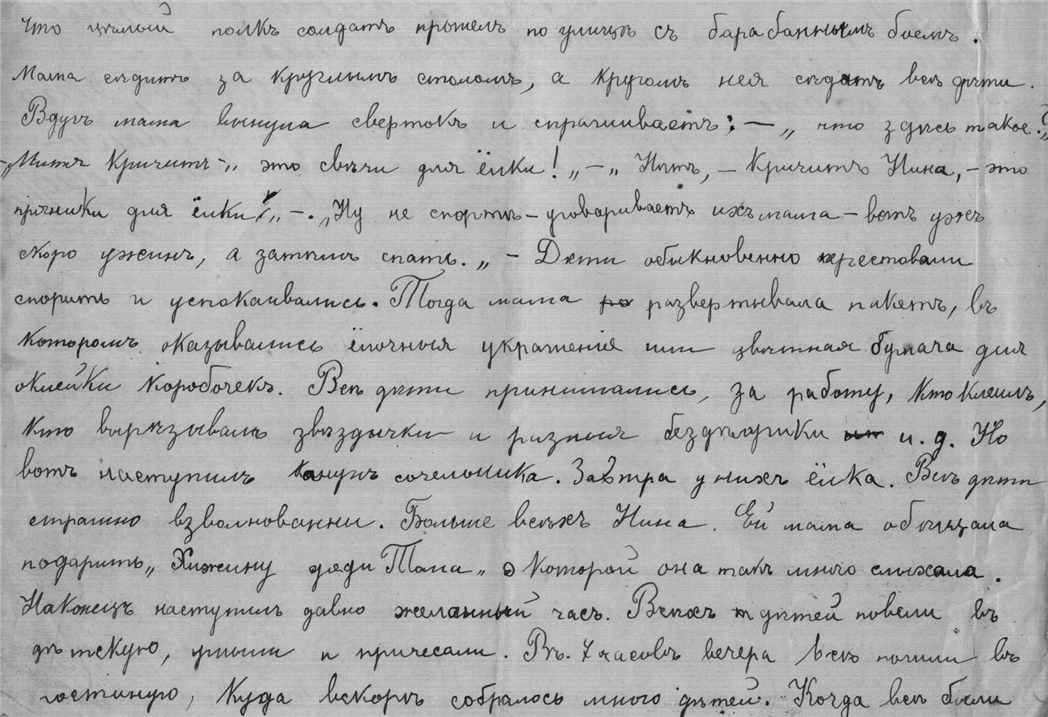 Что цѣлый полкъ солдатъ прошелъ по улицѣ съ барабаннымъ боемъ.
Мама сѣдитъ за круглымъ столомъ, а кругомъ нея сѣдятъ всѣ дѣти.
Вдугъ мама вынула свертокъ и спрашиваетъ: — „ что здѣсь такое?„
-„Митя кричитъ-„ это свѣчи для ёлки! „ — „ Нѣтъ, - кричитъ Нина, - это
пряники для ёлки!„ -. „Ну не спорте - уговариваетъ ихъ мама - вотъ ужъ
скоро ужинъ, а затѣмъ спать. „ - Дѣти обыкновенно перестовали
спорить и успокаивались. Тогда мама развертывала пакетъ, въ
которомъ оказывались ёлочныя украшенiе или цвѣтная бумага для
оклейки коробочекъ. Всѣ дѣти принимались, за работу, кто клеилъ,
кто вырѣзывалъ звѣздочки и разныя бездѣлушки и. д. Но
вотъ наступилъ канунъ сочельника. Завтра у нихъ ёлка. Всѣ дѣти
страшно взволнованны. Больше всѣхъ Нина. Ей мама обѣщала
подарить „ Хижину дяди Тома „ о которой она такъ много слыхала.
Наконецъ наступилъ давно желанный часъ. Всѣхъ дѣтей повели въ
дѣтскую, умыли и причесали. Въ. 7 часовъ вечера всѣ пошли въ
гостиную, куда вскорѣ собралось много дѣтей. Когда всѣ были